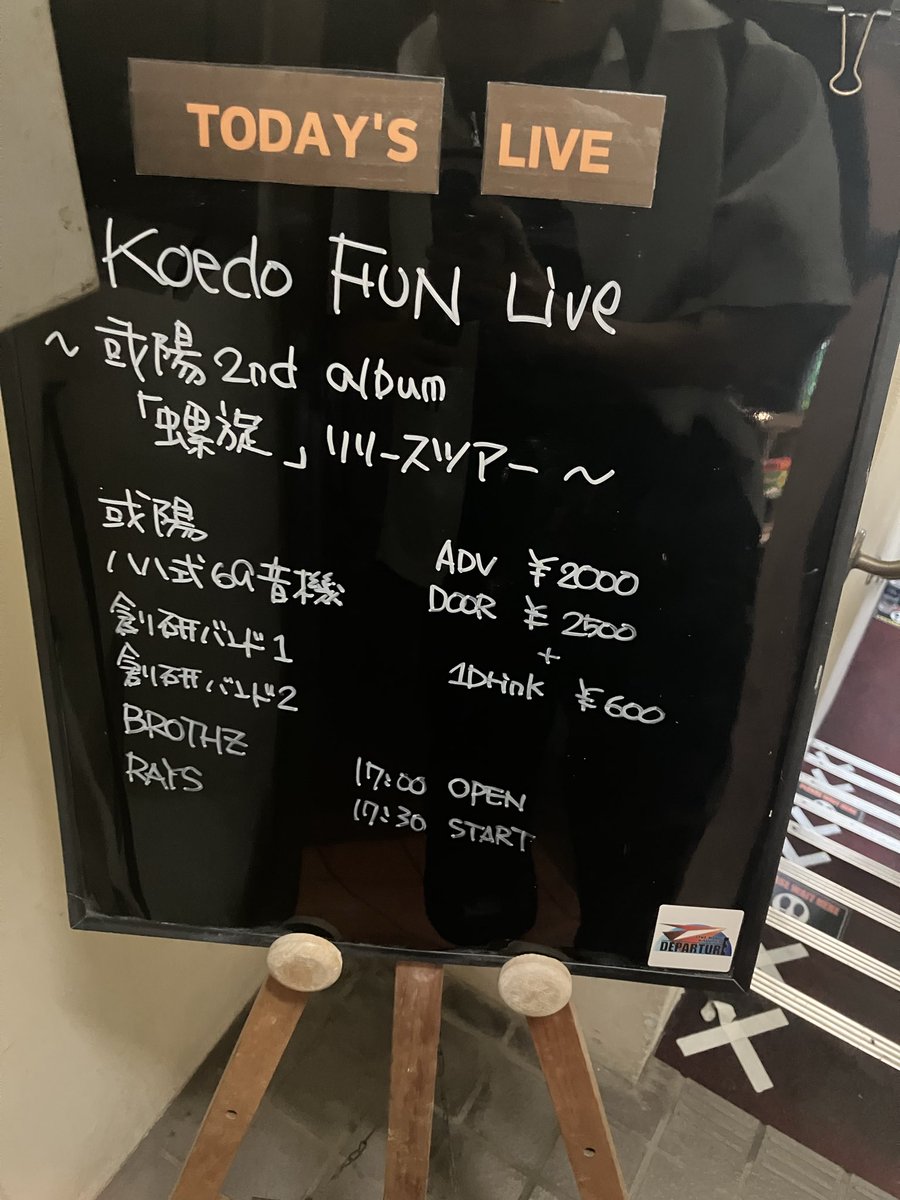 TODAY'S LIVE
Koedo FUN Live
～或陽 2nd album
「螺旋」リリースツアー～
或陽
ハハ式69音機
創研バンド1
創研バンド2
BROTHZ
RAYS
ADV ¥2000
DOOR ¥2500
+
1Drink ¥600
17:00 OPEN
17:30 START
DEPARTURE